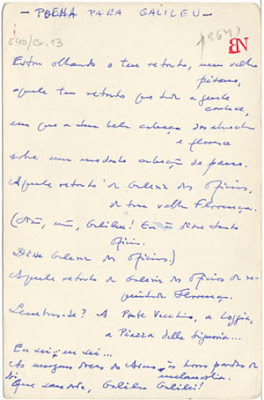 - POEMA PARA GALILEU -
E40/Cx.13
1964?
BN
Estou olhando o teu retrato, meu velho
pisano,
aquele teu retrato que toda a gente
conhece,
em que a tua bela cabeça desabrocha
e floresce
sobre um modesto cabeção de pano.
Aquele retrato da Galeria dos Ofícios,
da tua velha Florença.
(Não, não, Galileu! Eu não disse Santo
Ofício.
Disse Galeria dos Ofícios.)
Aquele retrato da Galeria dos Ofícios da re-
quintada Florença.
Lembras-te? A Ponte Vecchio, a Loggia,
a Piazza della Signoria...
Eu sei, eu sei...
As margens doces do Arno às horas pardas da
melancolia.
Ai que saudade, Galileo Galilei!